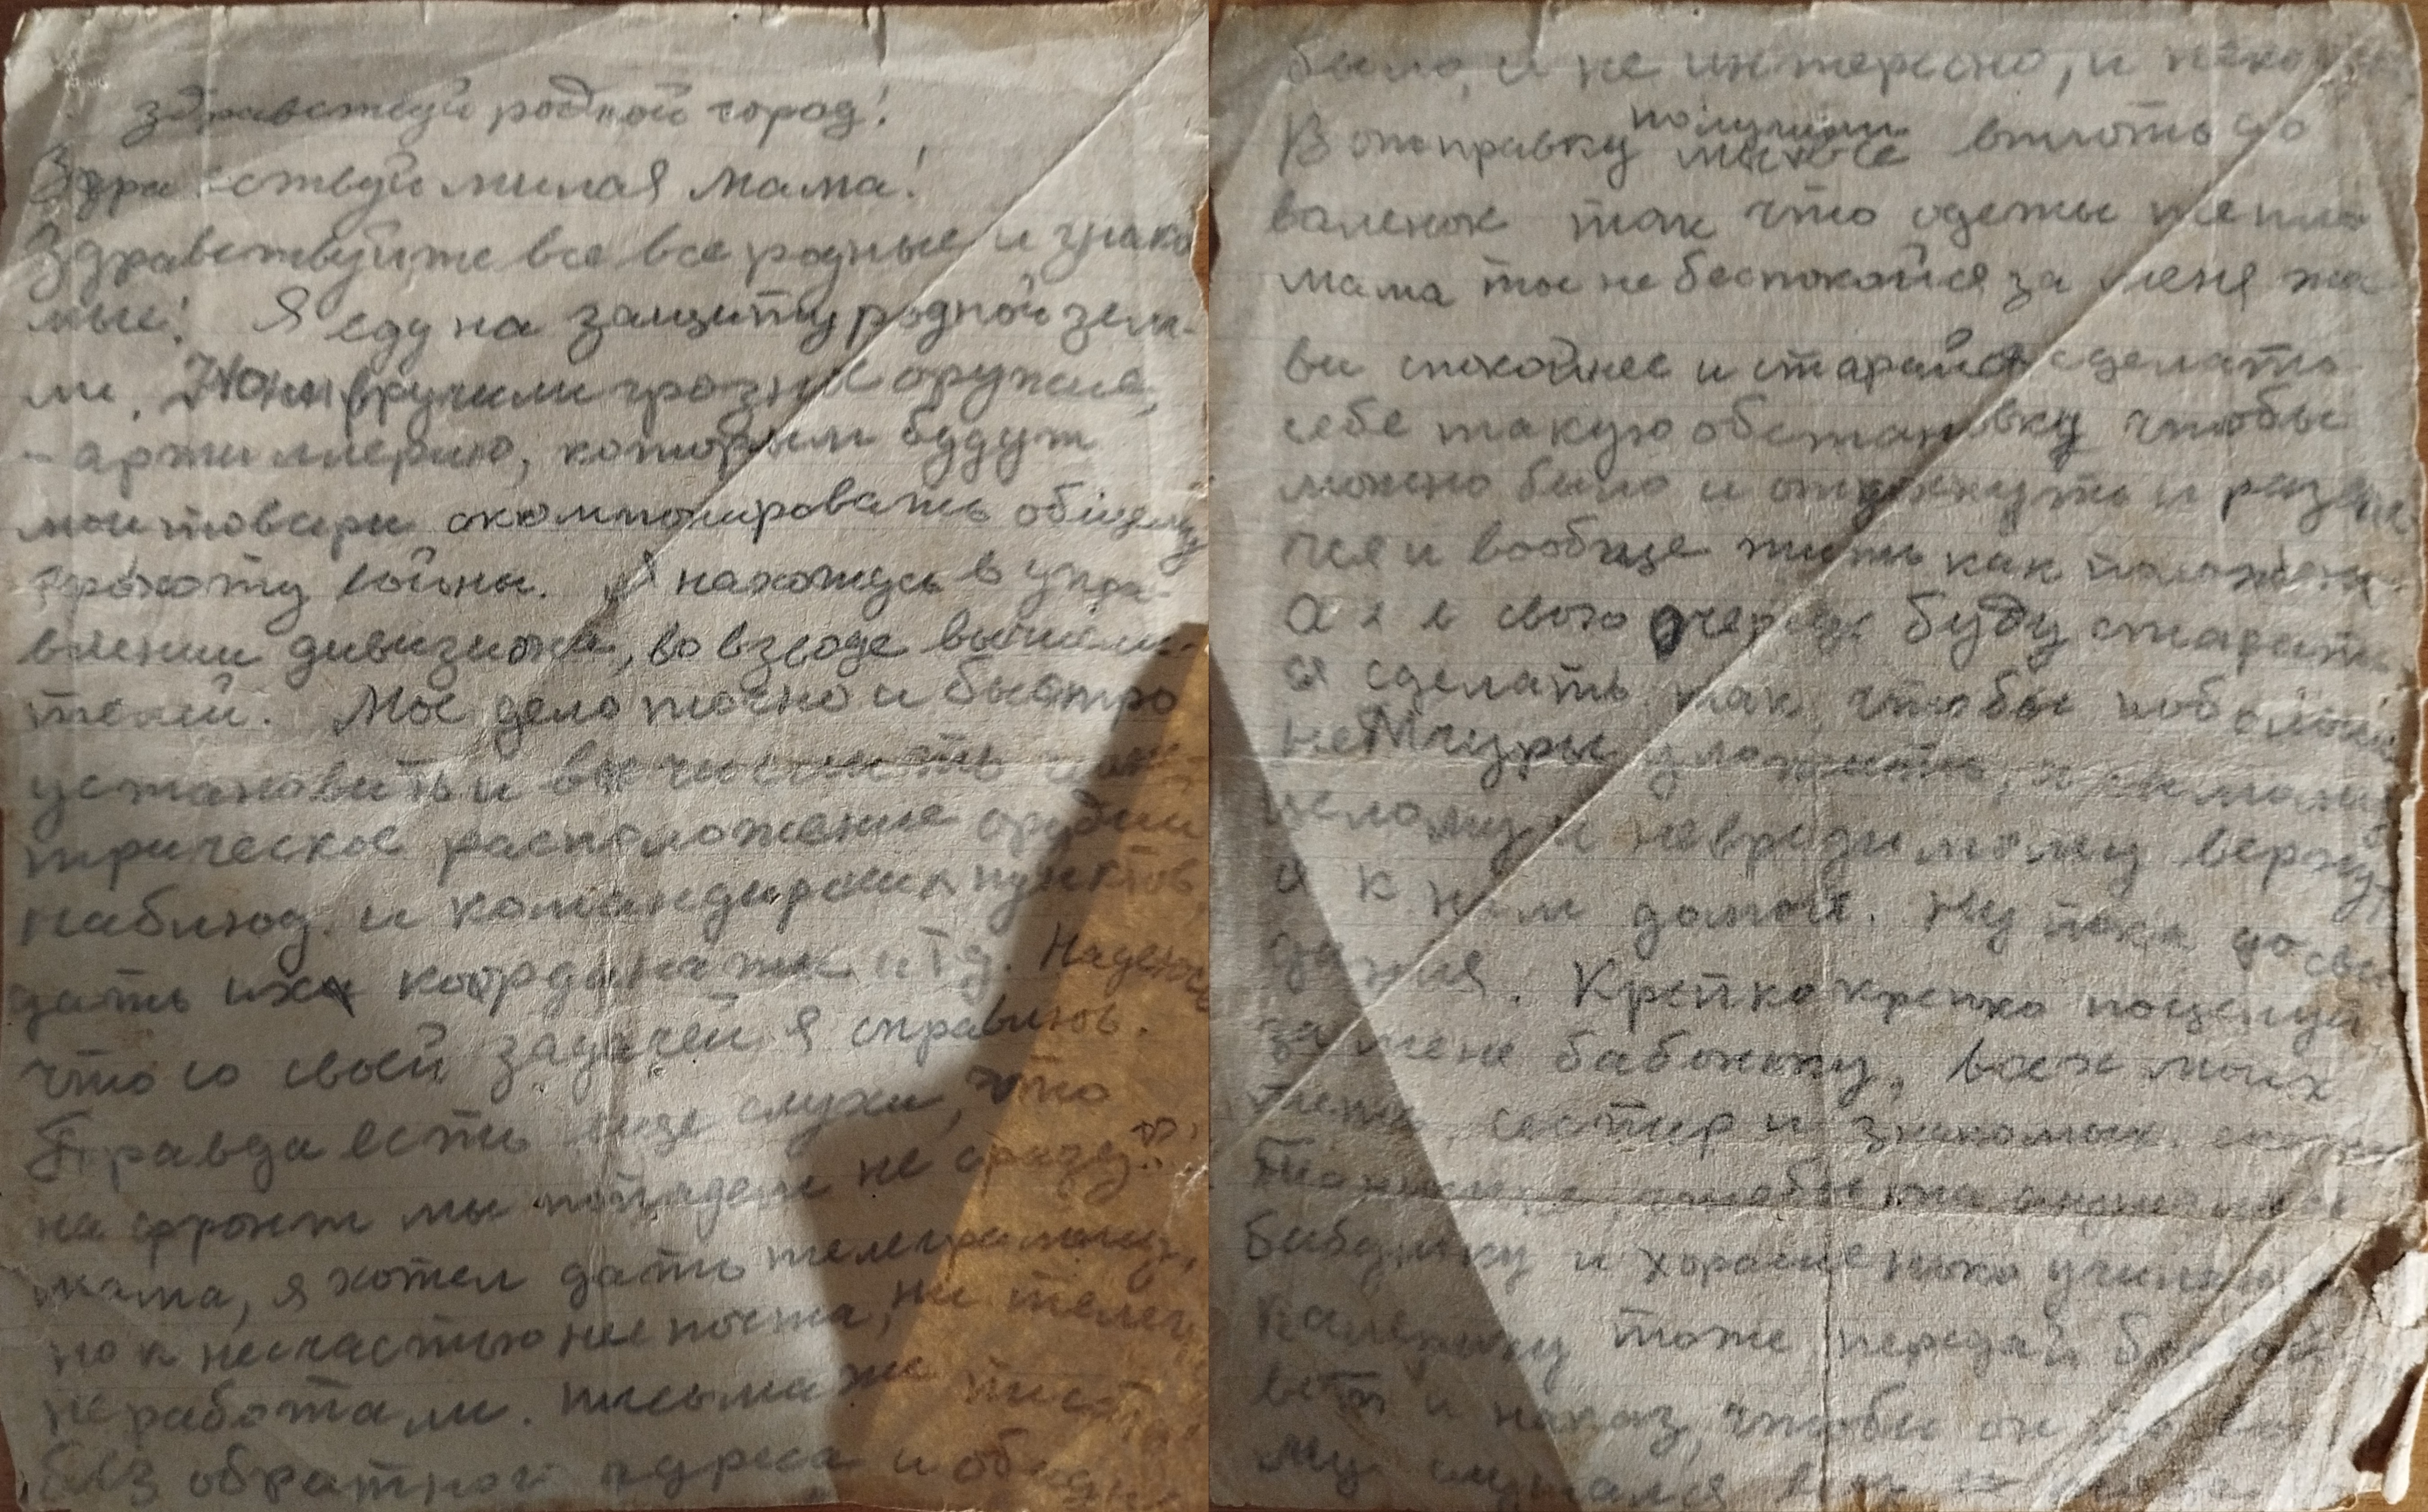 Здравствуй родной город!
Здравствуй милая мама!
Здравствуйте все все родные и знако
мые! Я еду на защиту родной зем-
ли. Нам вручили грозное оружие,
- артиллерию, которым будут
мои товари акомпонировать общему
грохоту войны. Я нахожусь в упра-
влении дивизиона, во взводе вычисли-
телей. Мое дело точно и быстро
установить и вычислить
трическое расположение орудий
наблюд. и командирских пунктов,
дать их координаты и т д. Надеюсь
что со своей задачей я справлюсь.
Правда есть еще слухи, что
на фронт мы попадем не сразу.
мама, я хотел дать телеграмму,
но к несчастью не почта, ни телег
не работали. письма же писать
без обратного адреса и обидно
было, и не интересно, и неко
В отправку получили вплоть до
валенок так что одеты тепло
мама ты не беспокойся за меня жи
ви спокойнее и старайся сделать
себе такую обстановку чтобы
можно было и отдохнуть и развле
чся и вообще жить как положено.
А я в свою очередь буду старать
ся сделать так, чтобы побольше
неМчуры уложить, и самому
целому и невредимому вернут-
ся к вам домой. Ну пока до сви
дания. Крепко крепко поцелуй
за меня бабоньку, всех моих
теть, сестер и знакомых.
чтобы она слушалась
бабушку и хорошенько училась
Валерику тоже передай
вет и наказ, чтобы он
му слушался